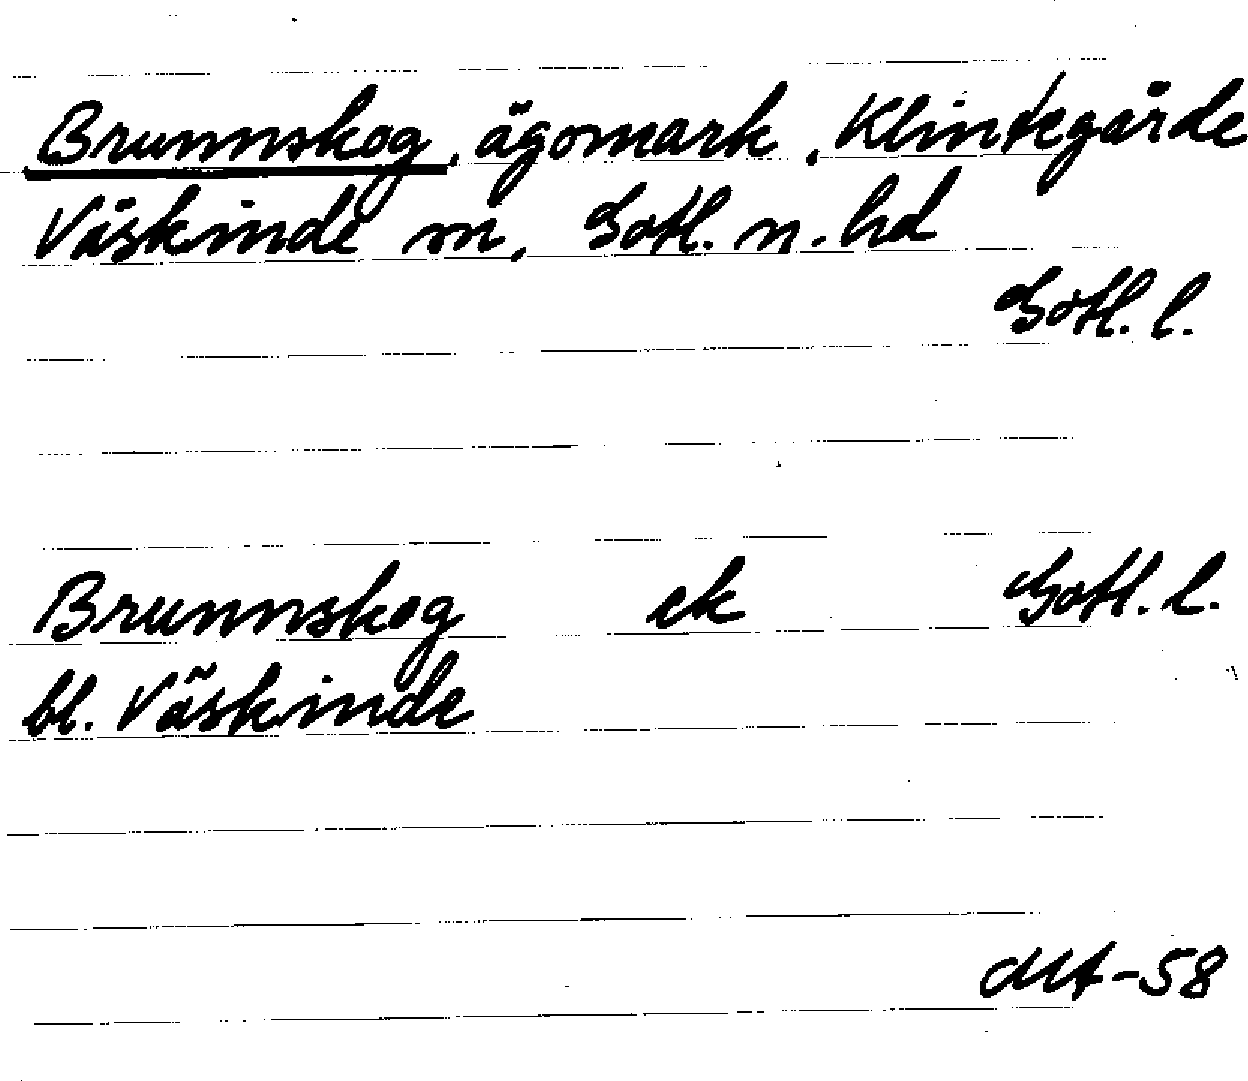 Brunnskog, ägomark, Klintegårde
Väskinde sn, Gotl. n. hd
Gotl. l.
Brunnskog ek Gotl. l.
bl. Väskinde
-58